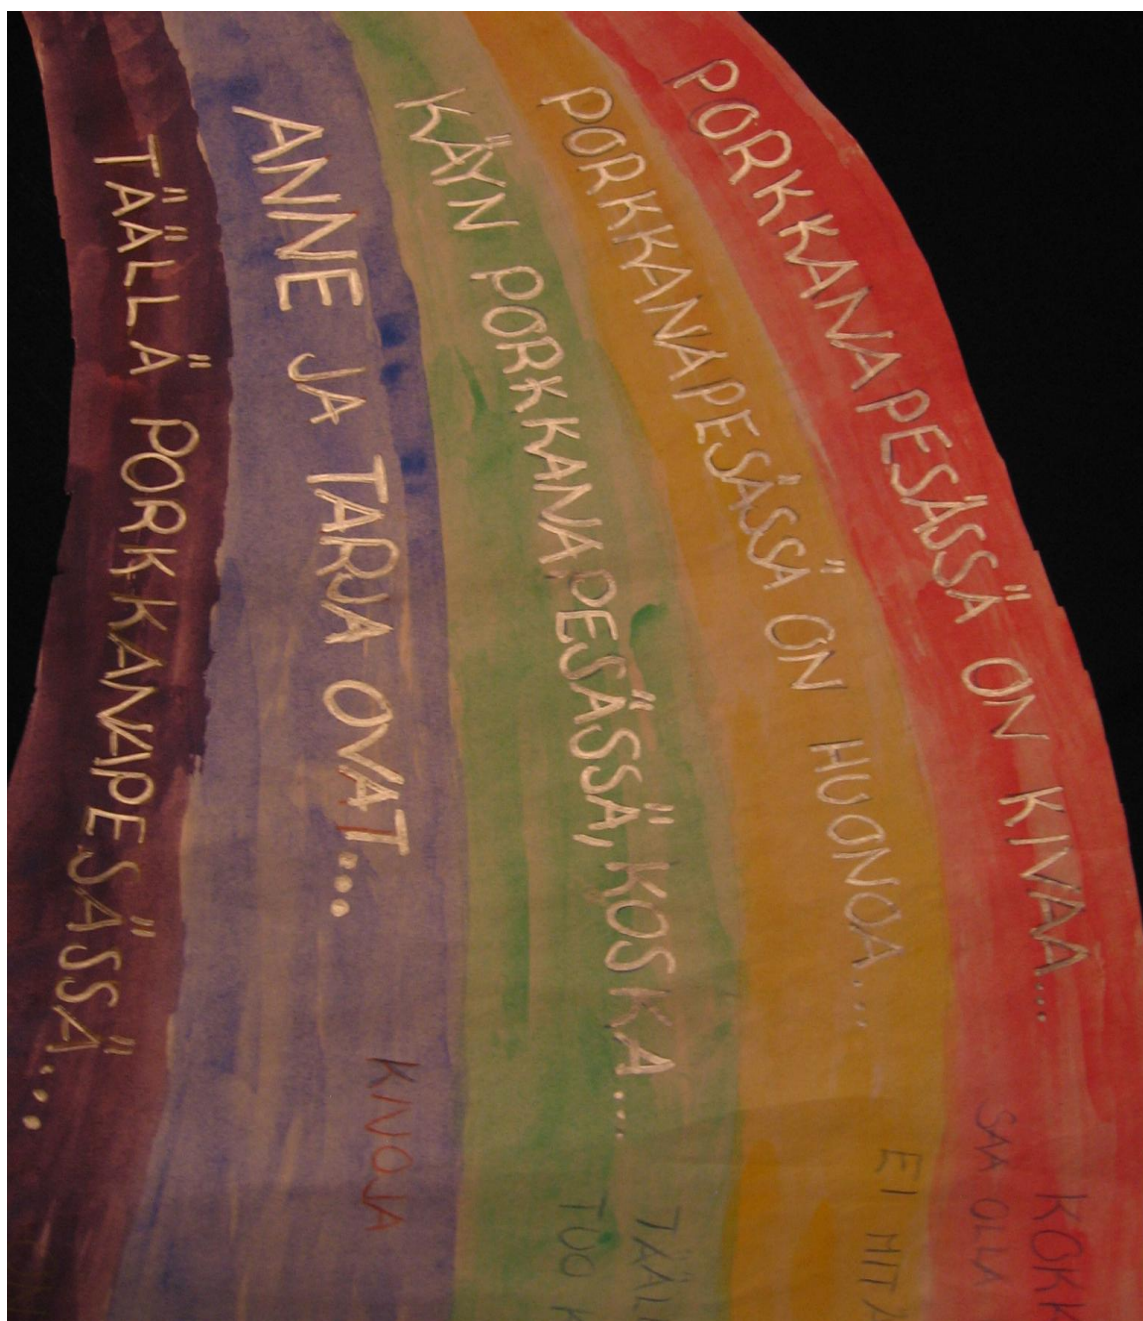 PORKKANAPESÄSSÄ ON KIVAA...
SAA OLLA
PORKKANAPESÄSSÄ ON HUONOA...
EI
KÄYN PORKKANAPESÄSSÄ, KOSKA...
ANNE JA TARJA OVAT...
KIVOJA
TÄÄLLÄ PORKKANAPESÄSSÄ....